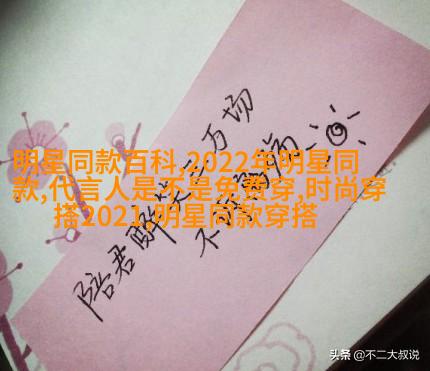 明星同款百科,2022年明星同
款,代言人是不是免费穿,时尚穿
搭2021,明星同款穿搭
陪君醉笑三万场
不
头条 @不二大叔说